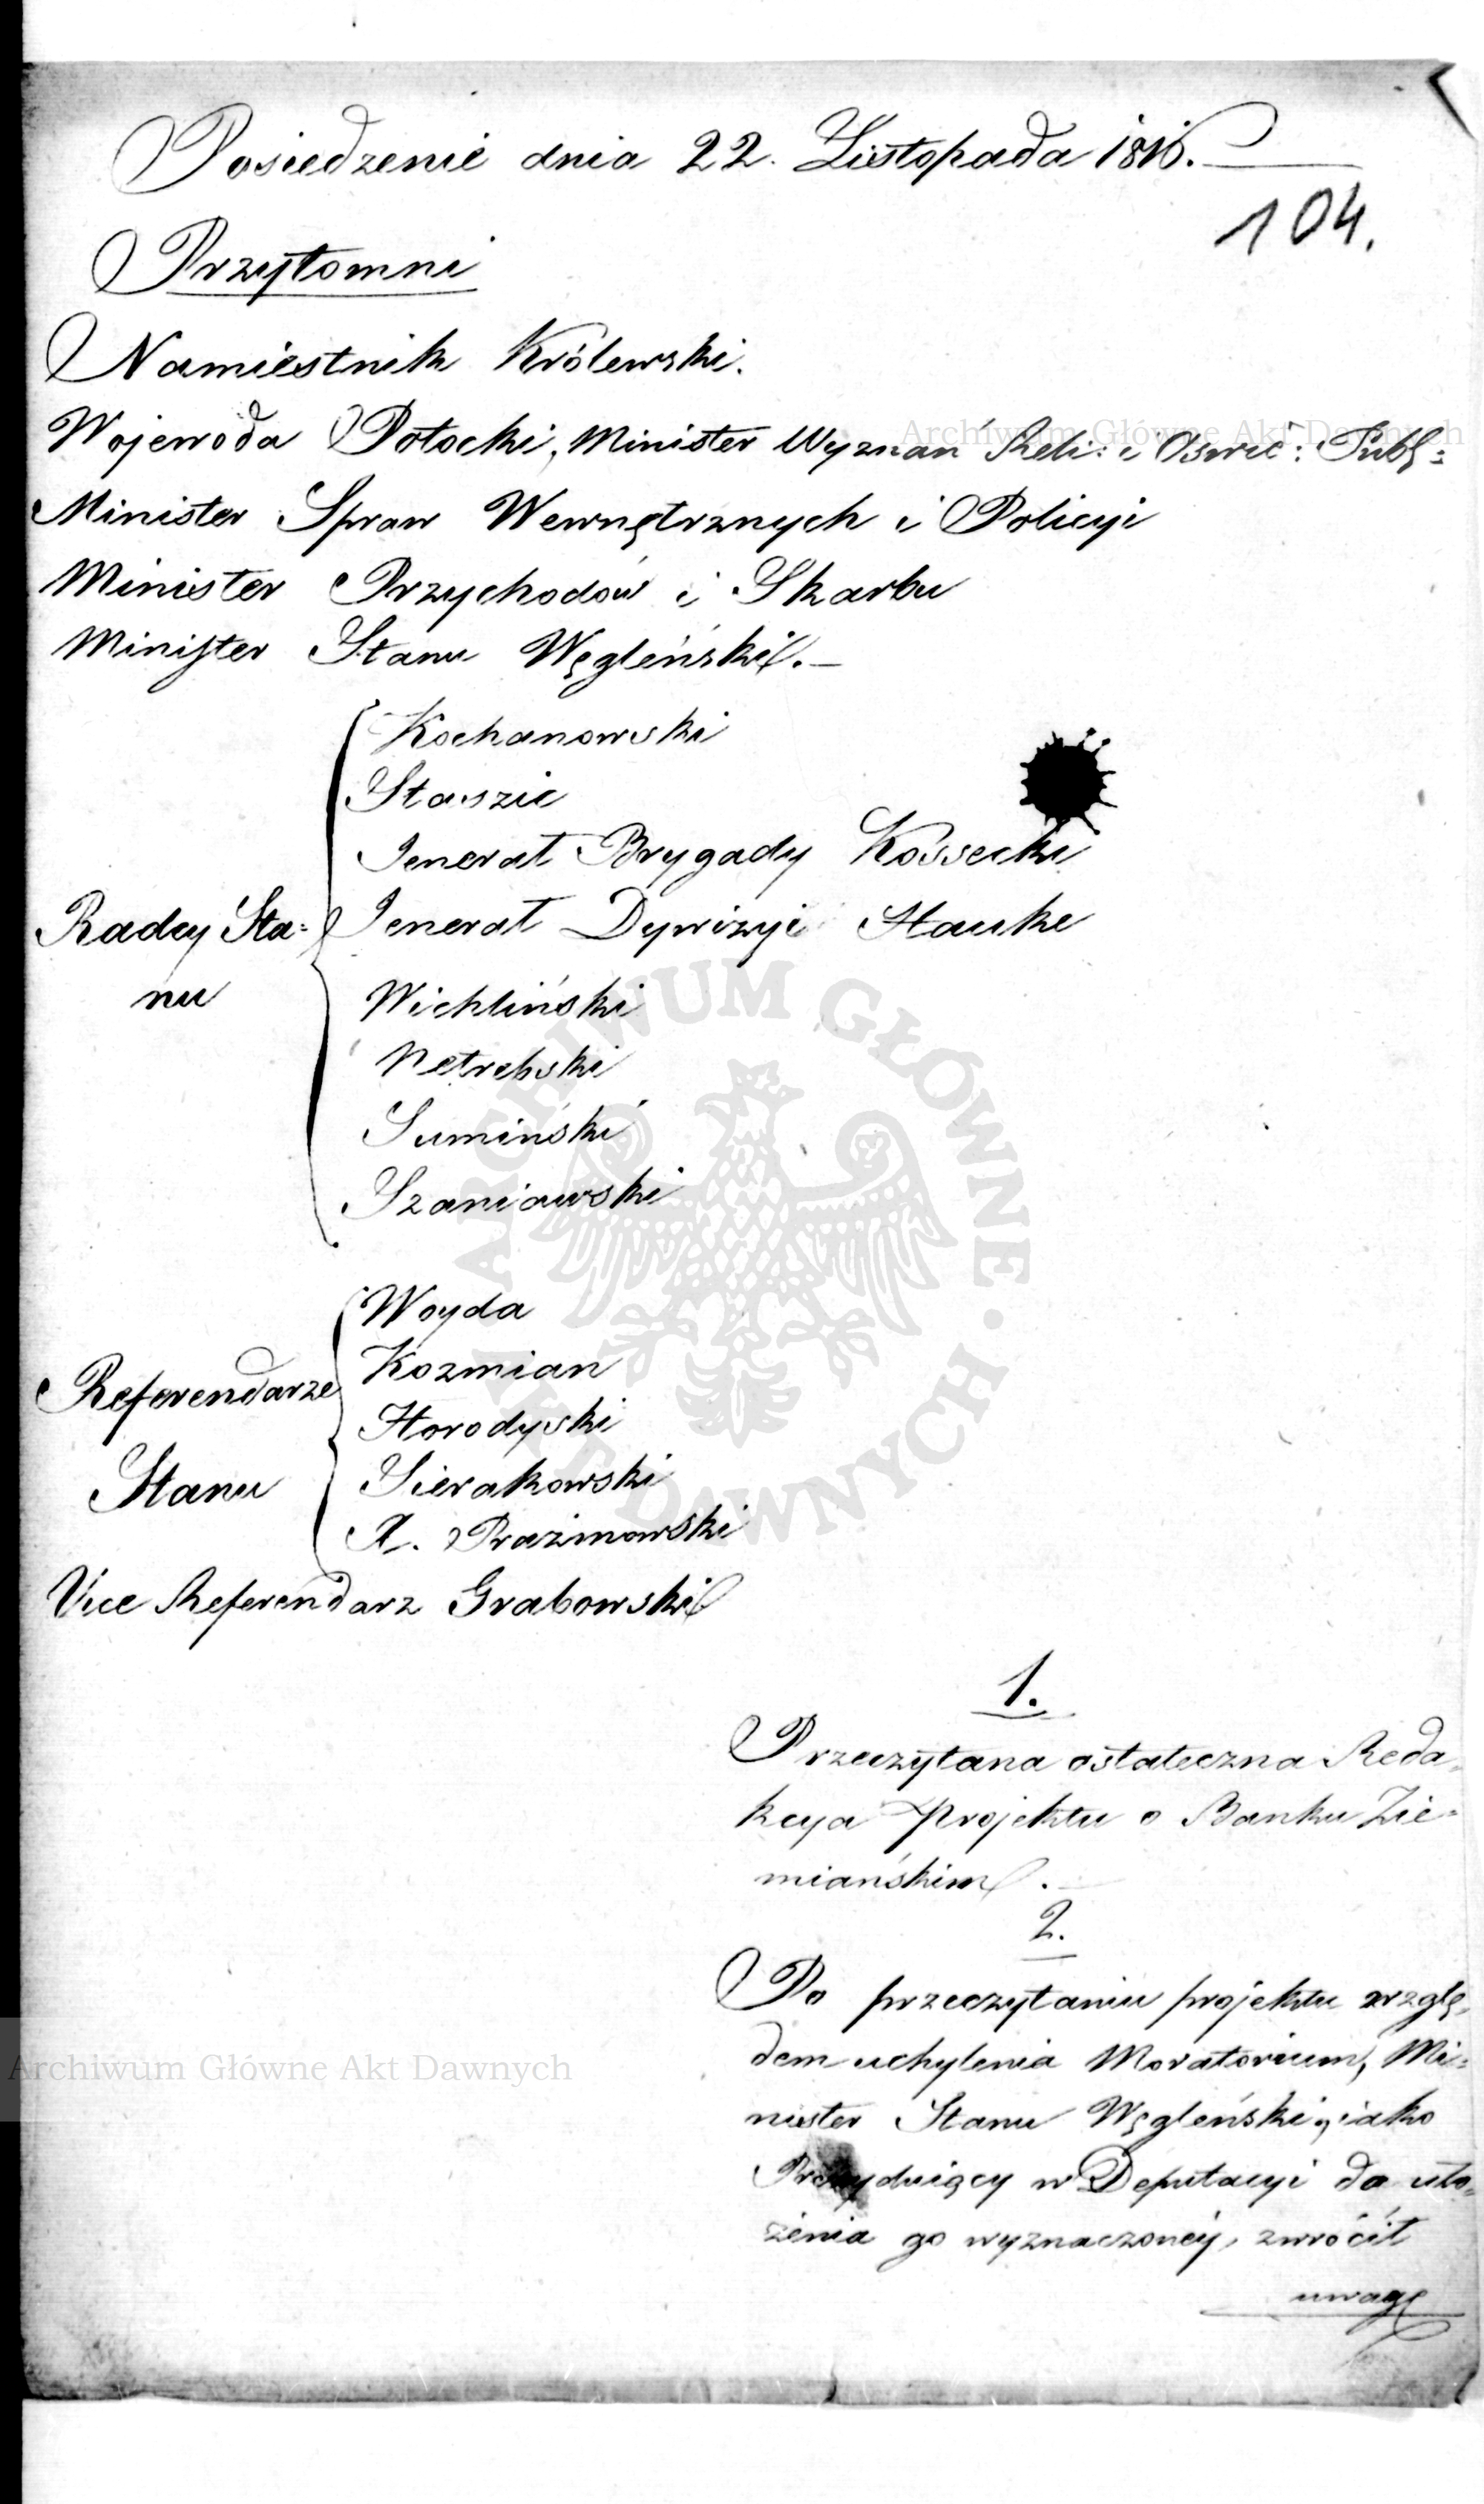 Posiedzenie dnia 22. Listopada 1816.
104.
Przytomni
Namiestnik Królewski.
Wojewoda Potocki, Minister Wyznań Reli: i Oświe: Publ:
Minister Spraw Wewnętrznych i Policyi
Minister Przychodów i Skarbu
Minister Stanu Węgleński.—
Kochanowski
Staszic
Jenerał Brygady Kossecki
Radcy Sta=
Jenerał Dywizyi Hauke
nu
Wichliński
Netrebski
Sumiński
Szaniawski
Woyda
Kozmian
Referendarze
Horodyski
Stanu
Sierakowski
X. Prażmowski
Vice Referendarz Grabowski
1.
Przeczytana ostateczna Reda=
kcya Projektu o Banku Zie=
miańskim.—
2.
Po przeczytaniu projektu wzglę=
dem uchylenia Moratorium, Mi=
nister Stanu Węgleński, iako
Prezyduiący w Deputacyi do uło=
żenia go wyznaczonéy, zwrócił
uwagę
Archiwum Główne Akt Dawnych
Archiwum Główne Akt Dawnych
ARCHIWUM GŁÓWNE · AKT DAWNYCH ·